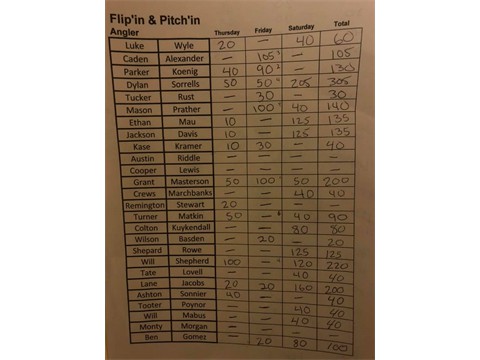 Flip'in & Pitch'in
Angler Thursday Friday Saturday Total
Luke Wyle 20 — 40 60
Caden Alexander — 105 — 105
Parker Koenig 40 90 — 130
Dylan Sorrells 50 50 205 305
Tucker Rust — 30 — 30
Mason Prather — 100 40 140
Ethan Mau 10 — 125 135
Jackson Davis 10 — 125 135
Kase Kramer 10 30 — 40
Austin Riddle — — — —
Cooper Lewis — — — —
Grant Masterson 50 100 50 200
Crews Marchbanks — — 40 40
Remington Stewart 20 — — —
Turner Matkin 50 — 40 90
Colton Kuykendall — — 80 80
Wilson Basden — 20 — 20
Shepard Rowe — — 125 125
Will Shepherd 100 — 120 220
Tate Lovell — — 40 40
Lane Jacobs 20 20 160 200
Ashton Sonnier 40 — — 40
Tooter Poynor — — 40 40
Will Mabus — — 40 40
Monty Morgan — — 40 40
Ben Gomez — 20 80 100